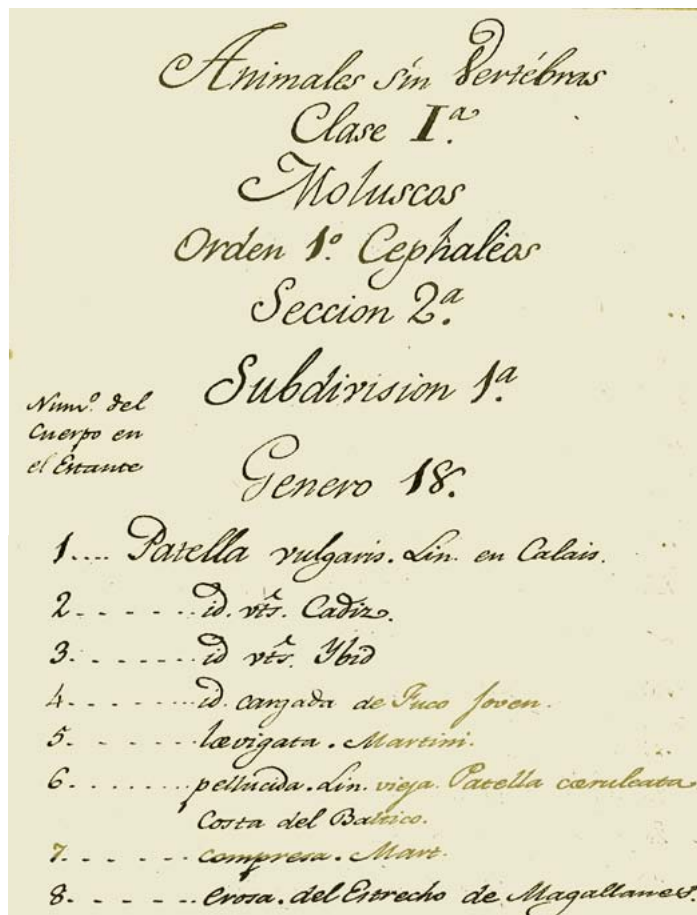 Animales sin Vertébras
Clase I.ª
Moluscos
Orden 1.º Cephaléos
Seccion 2.ª
Subdivision 1.ª
Num.º del
Cuerpo en
el Estante
Genero 18.
1.... Patella vulgaris. Lin. en Calais.
2. - - - - - - id. vts. Cadiz.
3. - - - - - - id vts. Ybid
4. - - - - - - id. cargada de Fuco joven.
5. - - - - - - lævigata. Martini.
6. - - - - - - pellucida. Lin. vieja. Patella cæruleata
Costa del Baltico.
7. - - - - - - compresa. Mart.
8. - - - - - - erosa. del Estrecho de Magallanes.